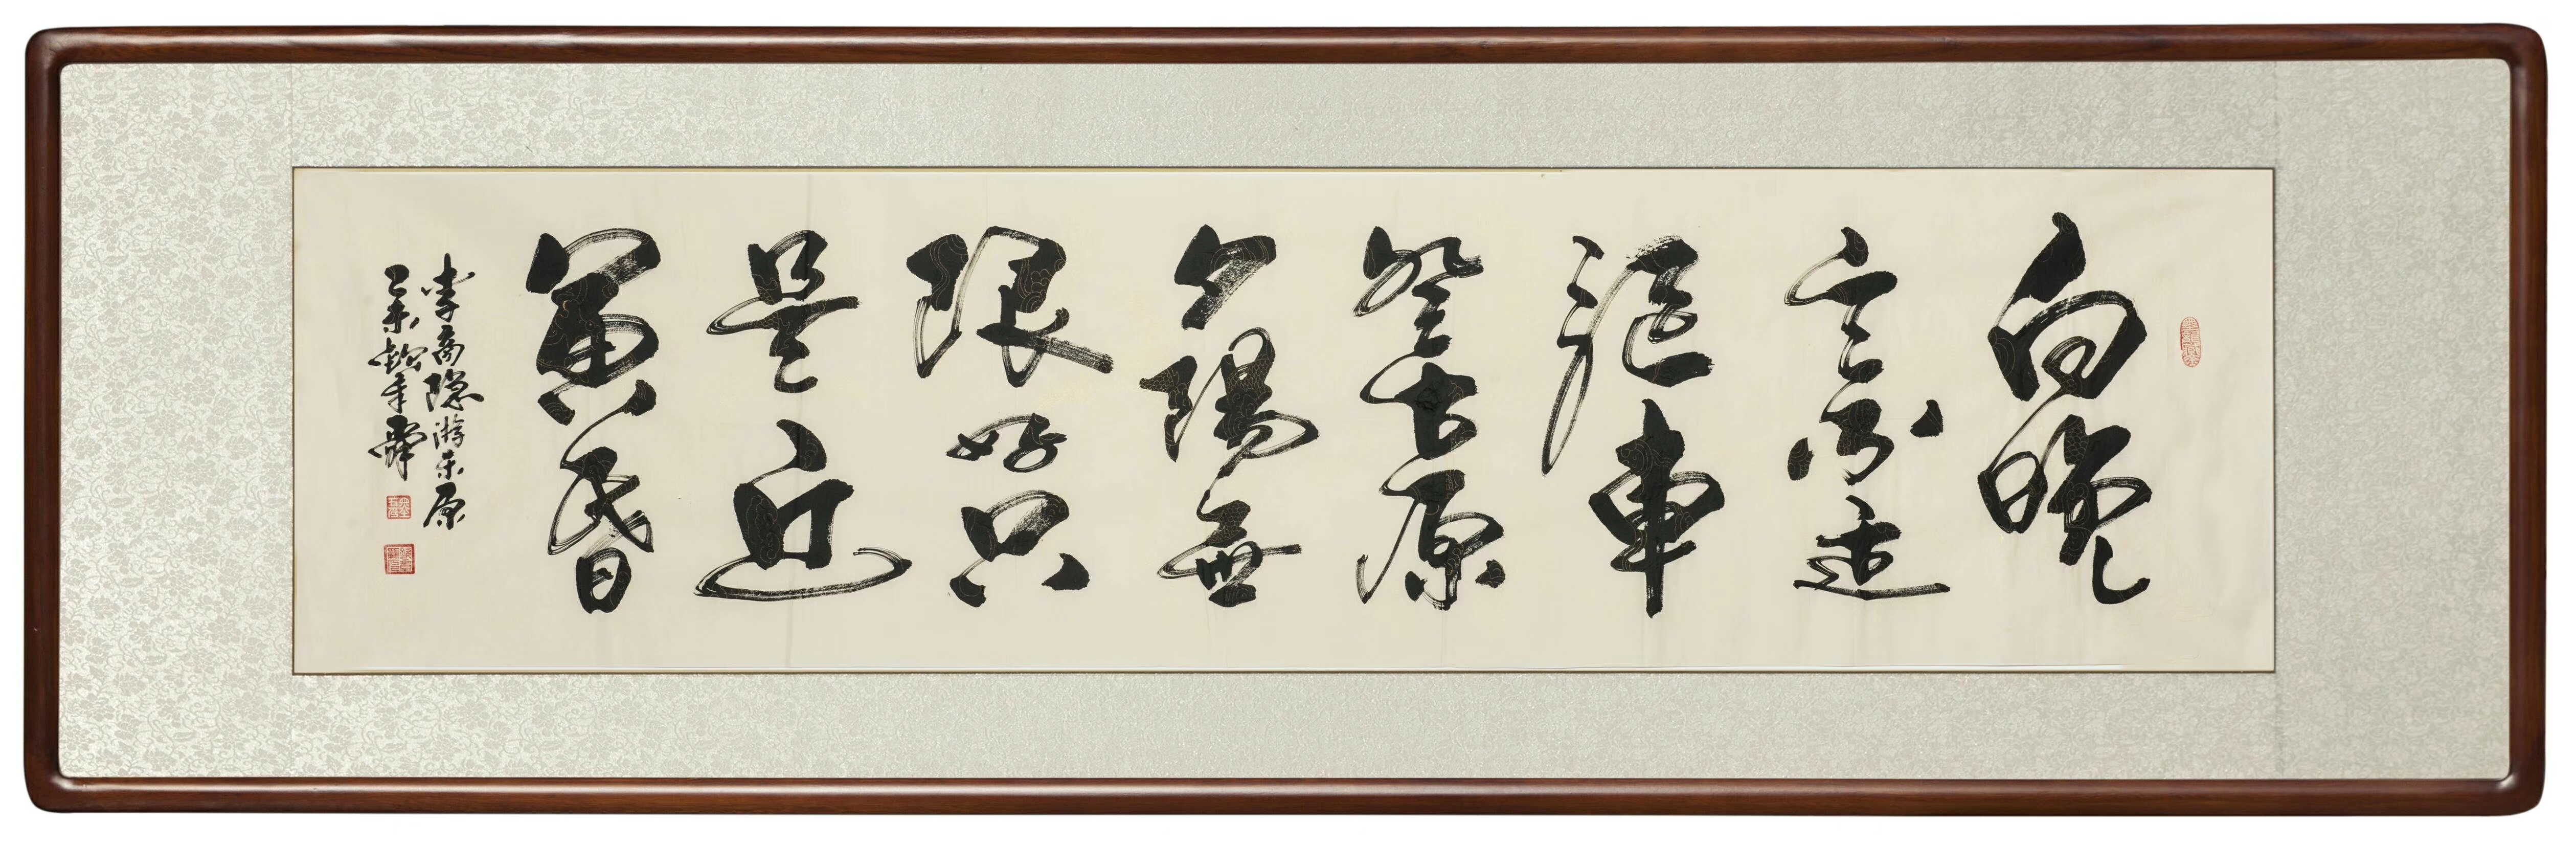 向晚
意不適
驅車
登古原
夕陽無
限好只
是近
黃昏
李商隱游樂原
乙未